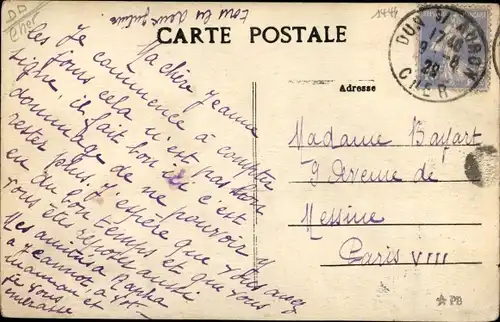 DD
Cher
tous les deux
1444
CARTE POSTALE
DUN-S-AURON
17 40
9 -8
28
CHER
Adresse
Ma chère Jeanne
Je commence à compter
les jours cela n'est pas bon
signe, il fait bon ici c'est
dommage de ne pouvoir y
rester plus. J'espère que vous avez
eu du bon temps et que vous
vous êtes reposés aussi
Mes amitiés à
à Jeannot à
maman et
je vous
embrasse
Madame Bayart
9 Avenue de
Messine
Paris VIII
PB